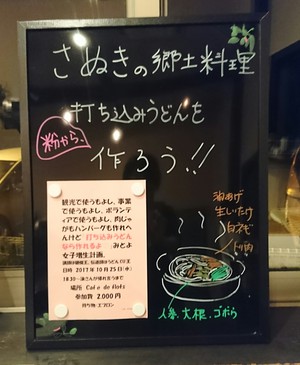 さぬきの郷土料理
打ち込みうどんを
粉から、
作ろう!!
観光で使うもよし、事業
で使うもよし、ボランティ
アで使うもよし、肉じゃ
がもハンバーグも作れへ
んけど 打ち込みうどん
なら作れるよ
女子増生計画。
日時 2017年10月25日(水)
場所 Cafe de flots
参加費 2,000円
持ち物:エプロン
油あげ
生しいたけ
白ネギ
トリ肉
人参、大根、ゴボウ